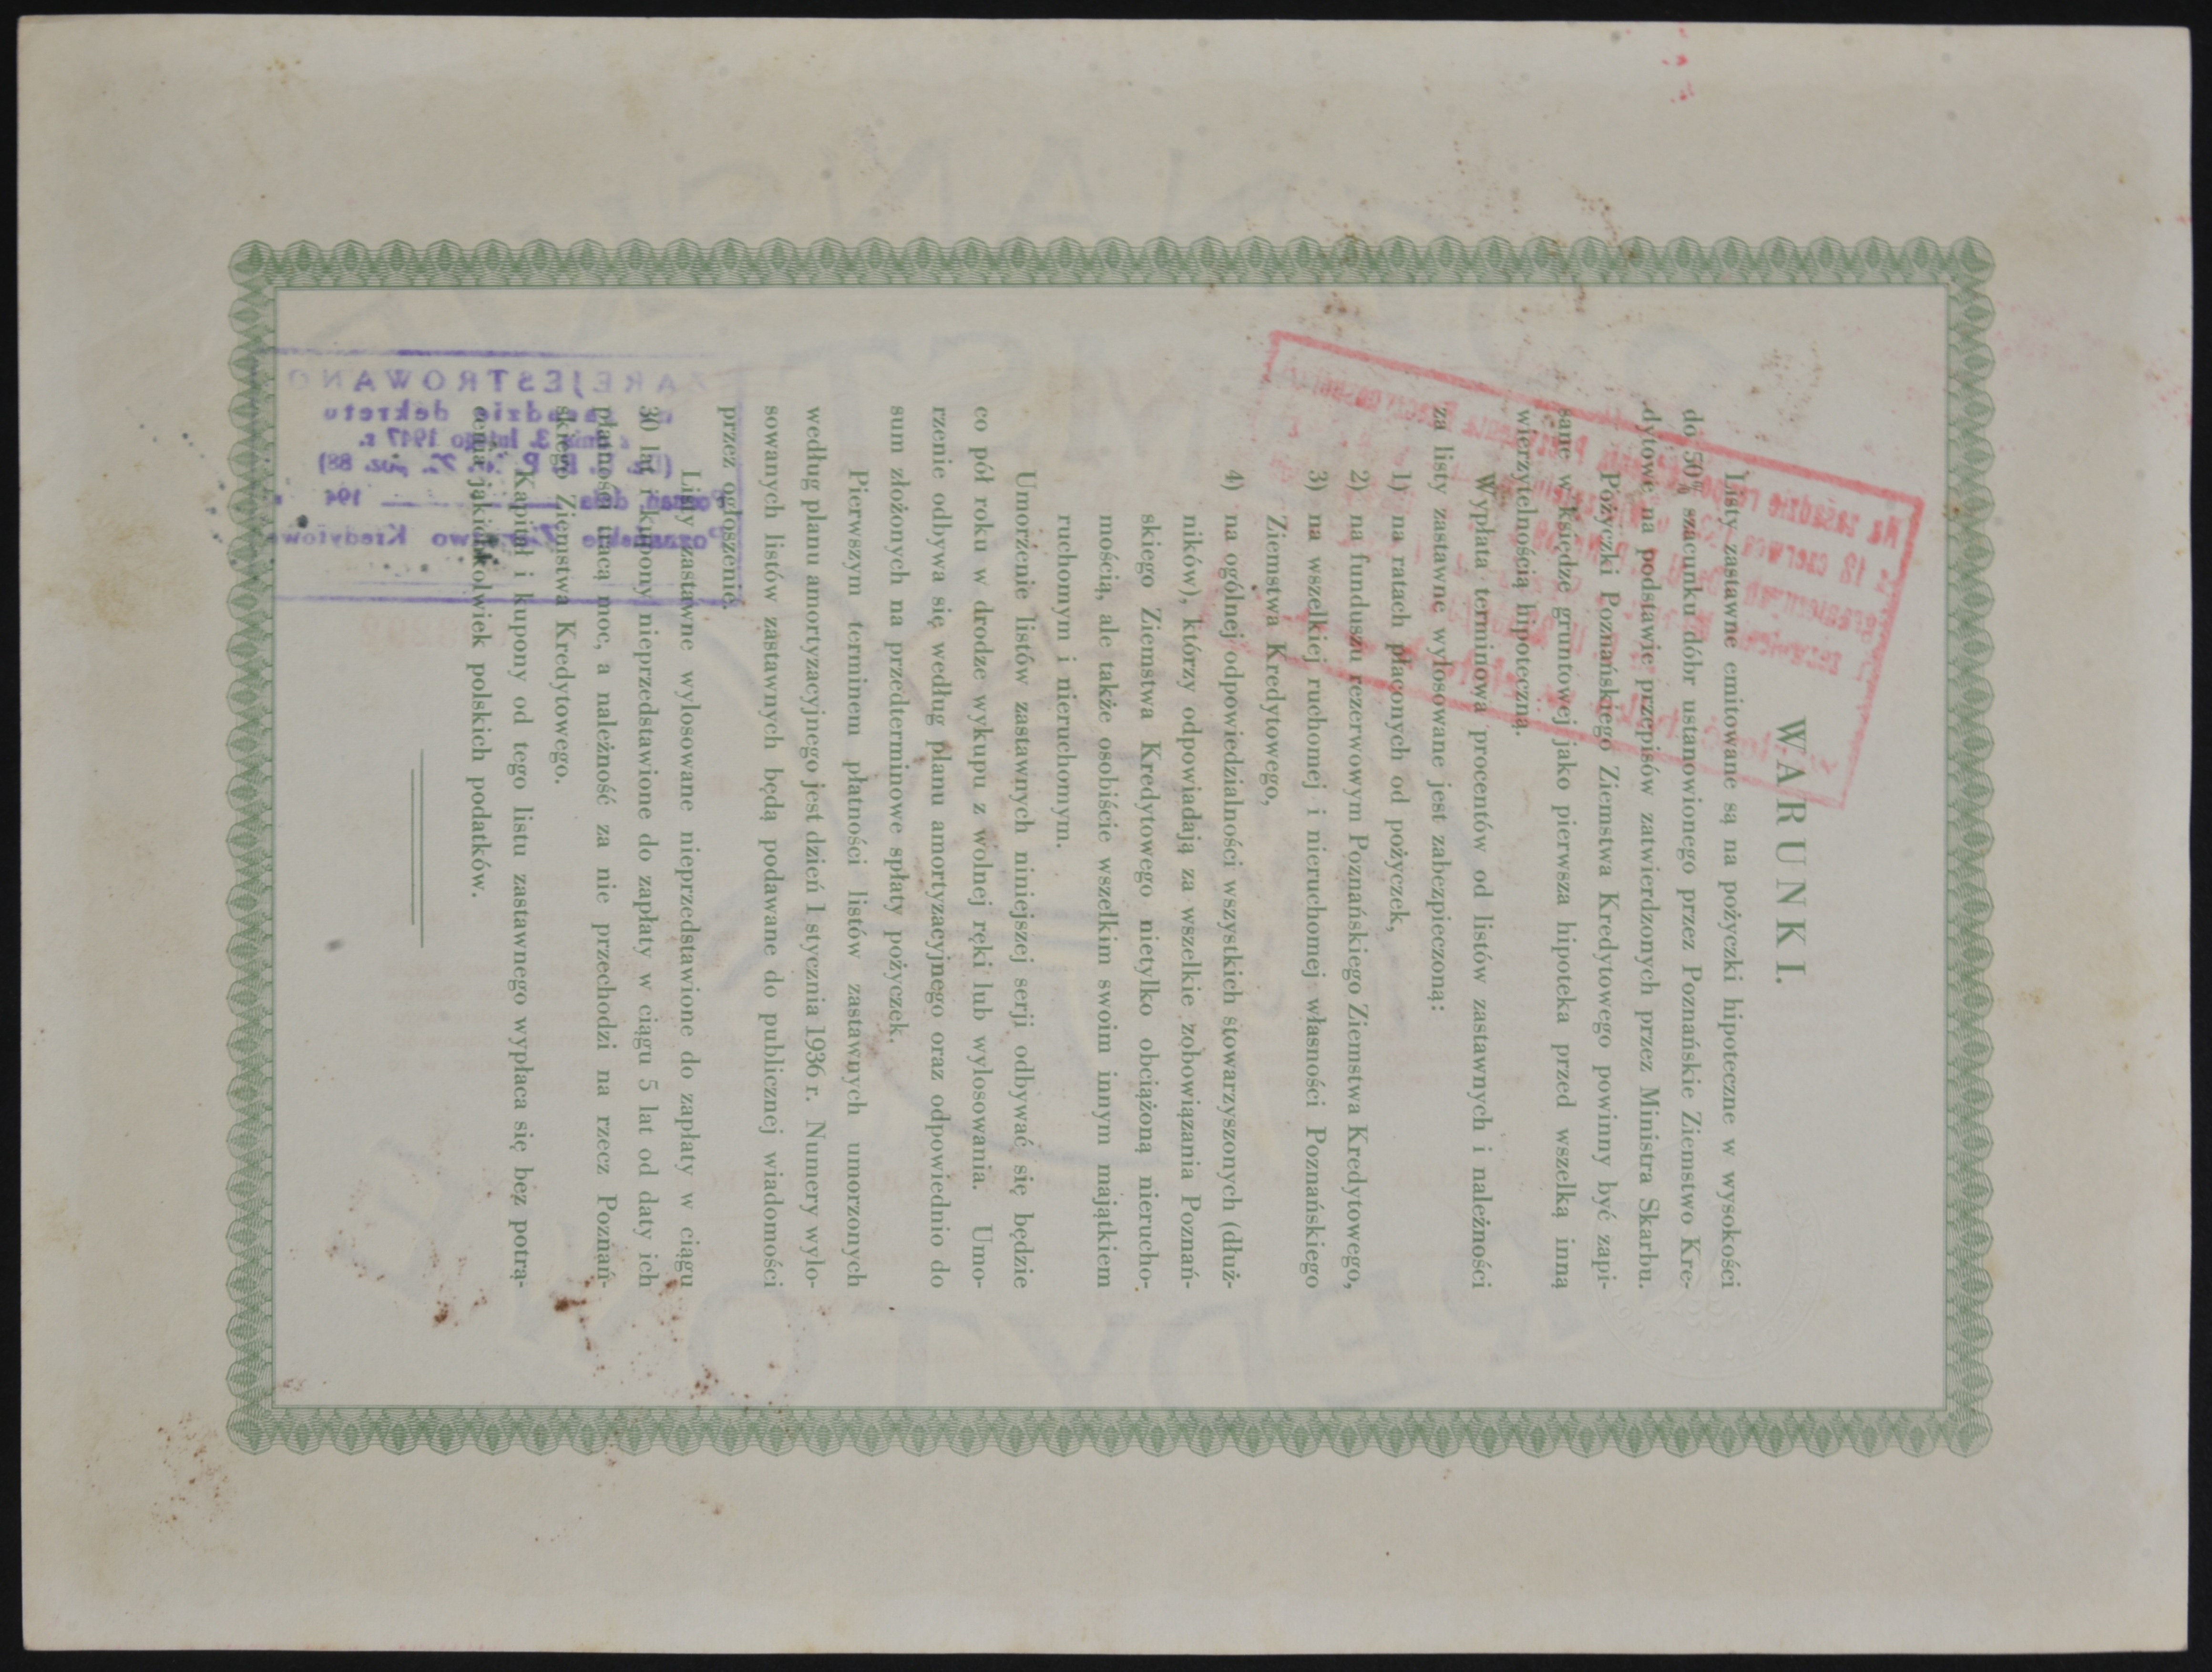 WARUNKI.
Listy zastawne emitowane są na pożyczki hipoteczne w wysokości
do 50% szacunku dóbr ustanowionego przez Poznańskie Ziemstwo Kre-
dytowe na podstawie przepisów zatwierdzonych przez Ministra Skarbu.
Pożyczki Poznańskiego Ziemstwa Kredytowego powinny być zapi-
sane w księdze gruntowej jako pierwsza hipoteka przed wszelką inną
wierzytelnością hipoteczną.
Wypłata terminowa procentów od listów zastawnych i należności
za listy zastawne wylosowane jest zabezpieczoną:
1) na ratach płaconych od pożyczek,
2) na funduszu rezerwowym Poznańskiego Ziemstwa Kredytowego,
3) na wszelkiej ruchomej i nieruchomej własności Poznańskiego
Ziemstwa Kredytowego,
4) na ogólnej odpowiedzialności wszystkich stowarzyszonych (dłuż-
ników), którzy odpowiadają za wszelkie zobowiązania Poznań-
skiego Ziemstwa Kredytowego nietylko obciążoną nierucho-
mością, ale także osobiście wszelkim swoim innym majątkiem
ruchomym i nieruchomym.
Umorzenie listów zastawnych niniejszej serji odbywać się będzie
co pół roku w drodze wykupu z wolnej ręki lub wylosowania. Umo-
rzenie odbywa się według planu amortyzacyjnego oraz odpowiednio do
sum złożonych na przedterminowe spłaty pożyczek.
Pierwszym terminem płatności listów zastawnych umorzonych
według planu amortyzacyjnego jest dzień 1 stycznia 1936 r. Numery wylo-
sowanych listów zastawnych będą podawane do publicznej wiadomości
przez ogłoszenie.
Listy zastawne wylosowane nieprzedstawione do zapłaty w ciągu
30 lat i kupony nieprzedstawione do zapłaty w ciągu 5 lat od daty ich
płatności tracą moc, a należność za nie przechodzi na rzecz Poznań-
skiego Ziemstwa Kredytowego.
Kapitał i kupony od tego listu zastawnego wypłaca się bez potrą-
cenia jakichkolwiek polskich podatków.
ZAREJESTROWANO
na zasadzie dekretu
z dnia 3. lutego 1947 r.
poz. 88)
Poznań dnia 194
Poznańskie Ziemstwo Kredytowe
Na zasadzie
12 czerwca